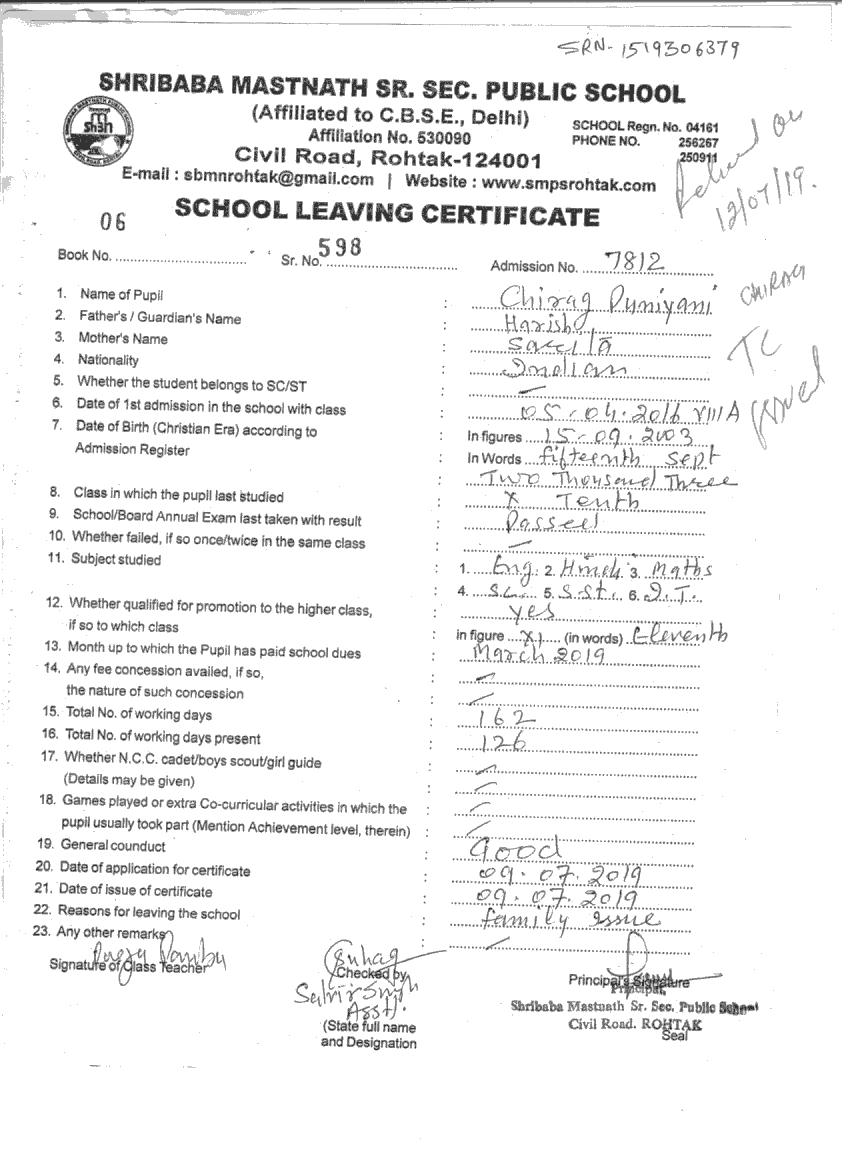 SRN- 1519306379
SHRIBABA MASTNATH SR. SEC. PUBLIC SCHOOL
(Affiliated to C.B.S.E., Delhi)
Affiliation No. 530090
SCHOOL Regn. No. 04161
PHONE NO. 256267
250911
Civil Road, Rohtak-124001
E-mail : sbmnrohtak@gmail.com | Website : www.smpsrohtak.com
on
12/07/19.
SCHOOL LEAVING CERTIFICATE
Book No. 06 Sr. No. 598 Admission No. 7812
CHIRAG
TC
Issued
1. Name of Pupil : Chirag Duniyani
2. Father's / Guardian's Name : Harish
3. Mother's Name :
4. Nationality : Indian
5. Whether the student belongs to SC/ST : —
6. Date of 1st admission in the school with class : 05-04-2016 VIII A
7. Date of Birth (Christian Era) according to : In figures 15-09-2003
Admission Register : In Words fifteenth Sept
Two Thousand Three
8. Class in which the pupil last studied : X Tenth
9. School/Board Annual Exam last taken with result : Passed
10. Whether failed, if so once/twice in the same class : —
11. Subject studied : 1. Eng. 2. Hindi 3. Maths
4. Sc. 5. S.St. 6. I.T.
12. Whether qualified for promotion to the higher class, : yes
if so to which class in figure XI (in words) Eleventh
13. Month up to which the Pupil has paid school dues : March 2019
14. Any fee concession availed, if so, : —
the nature of such concession —
15. Total No. of working days : 162
16. Total No. of working days present : 126
17. Whether N.C.C. cadet/boys scout/girl guide : —
(Details may be given) : —
18. Games played or extra Co-curricular activities in which the : —
pupil usually took part (Mention Achievement level, therein) : —
19. General counduct : Good
20. Date of application for certificate : 09.07.2019
21. Date of issue of certificate : 09.07.2019
22. Reasons for leaving the school : family issue
23. Any other remarks : —
Signature of Class Teacher
Suhag
Checked by
Singh
Asstt.
(State full name
and Designation
Principal's Signature
Principal,
Shribaba Mastnath Sr. Sec. Public School
Civil Road. ROHTAK
Seal